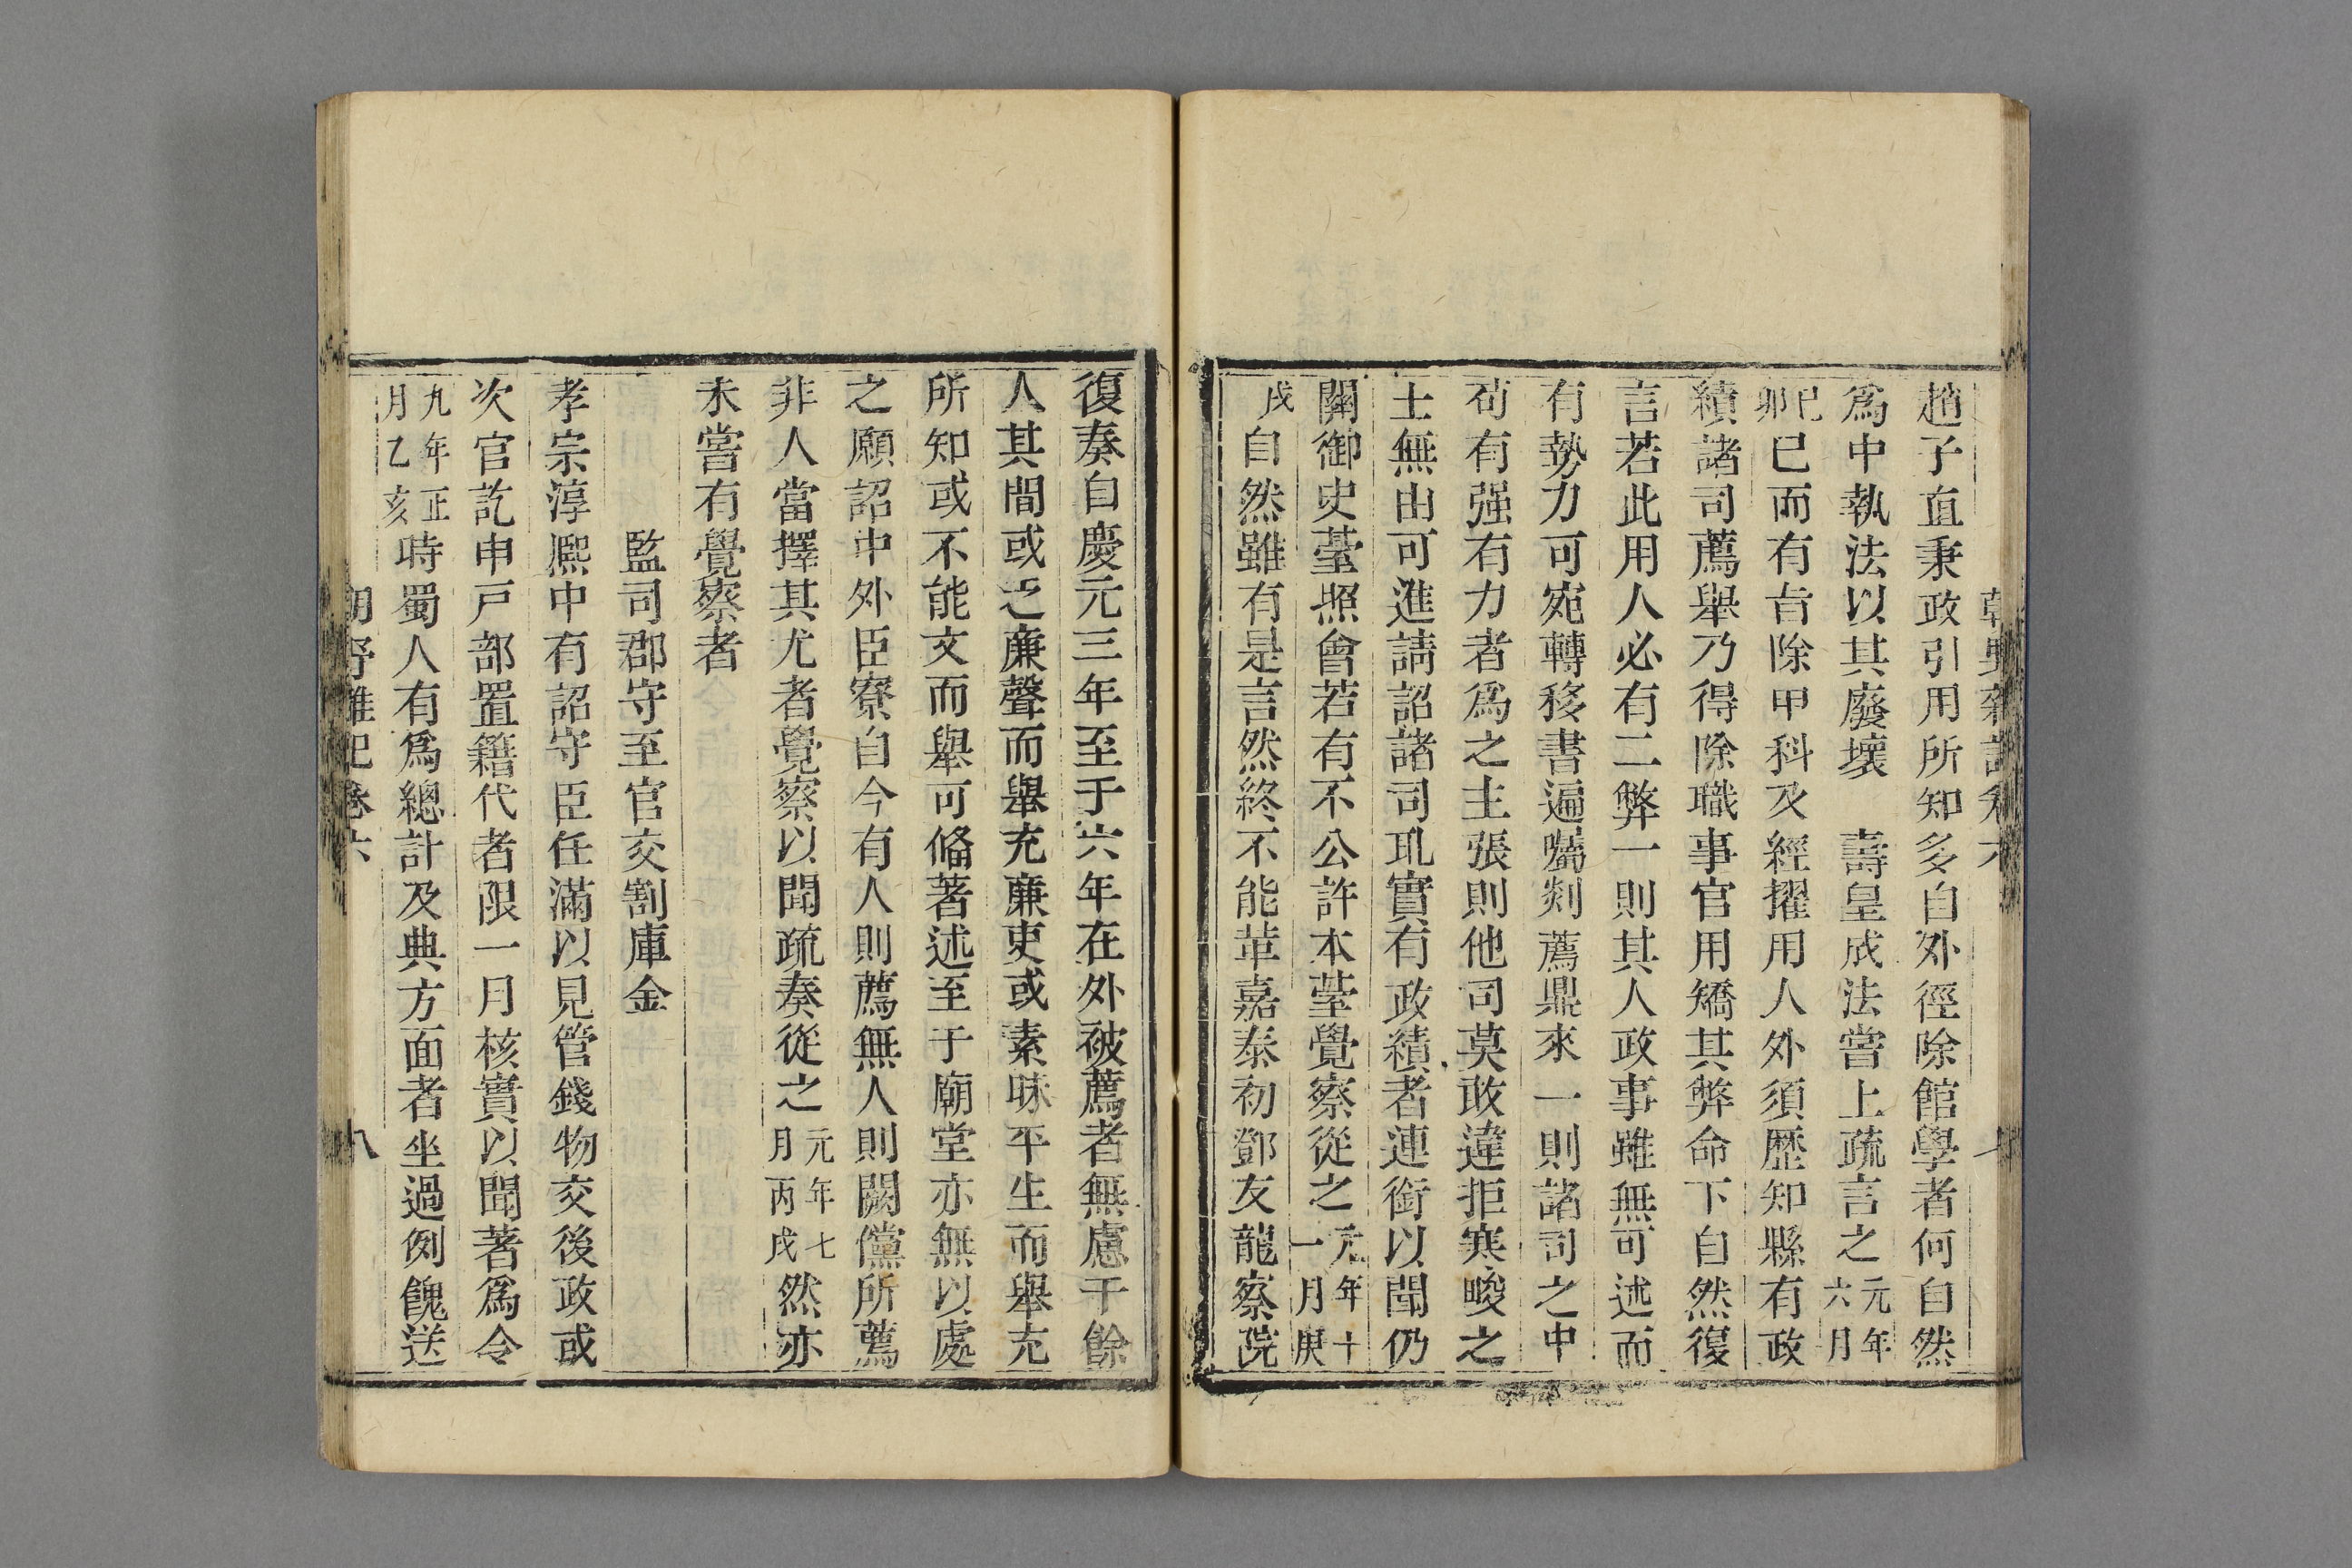 趙子直秉政引用所知多自外徑除館學者何自然
爲中執法以其廢壞　壽皇成法嘗上疏言之元年六月
己卯已而有旨除甲科及經擢用人外須歷知縣有政
績諸司薦舉乃得除職事官用矯其弊命下自然復
言若此用人必有二弊一則其人政事雖無可述而
有勢力可宛轉移書遍囑剡薦鼎來一則諸司之中
茍有强有力者爲之主張則他司莫敢違拒寒畯之
士無由可進請詔諸司耴實有政績者連銜以聞仍
關御史臺照會若有不公許本臺覺察從之元年十一月庚
戌自然雖有是言然終不能革嘉泰初鄧友龍察院
復奏自慶元三年至于六年在外被薦者無慮千餘
人其間或乏亷聲而舉充亷吏或素昧平生而舉充
所知或不能文而舉可偹著述至于廟堂亦無以處
之願詔中外臣寮自今有人則薦無人則闕儻所薦
非人當擇其尤者覺察以聞疏奏從之元年七月丙戌然亦
未嘗有覺察者
監司郡守至官交割庫金
孝宗淳熈中有詔守臣任滿以見管錢物交後政或
次官訖申戸部置籍代者限一月核實以聞著爲令
九年正月乙亥時蜀人有爲總計及典方面者坐過例餽送
朝野雜記卷六
八